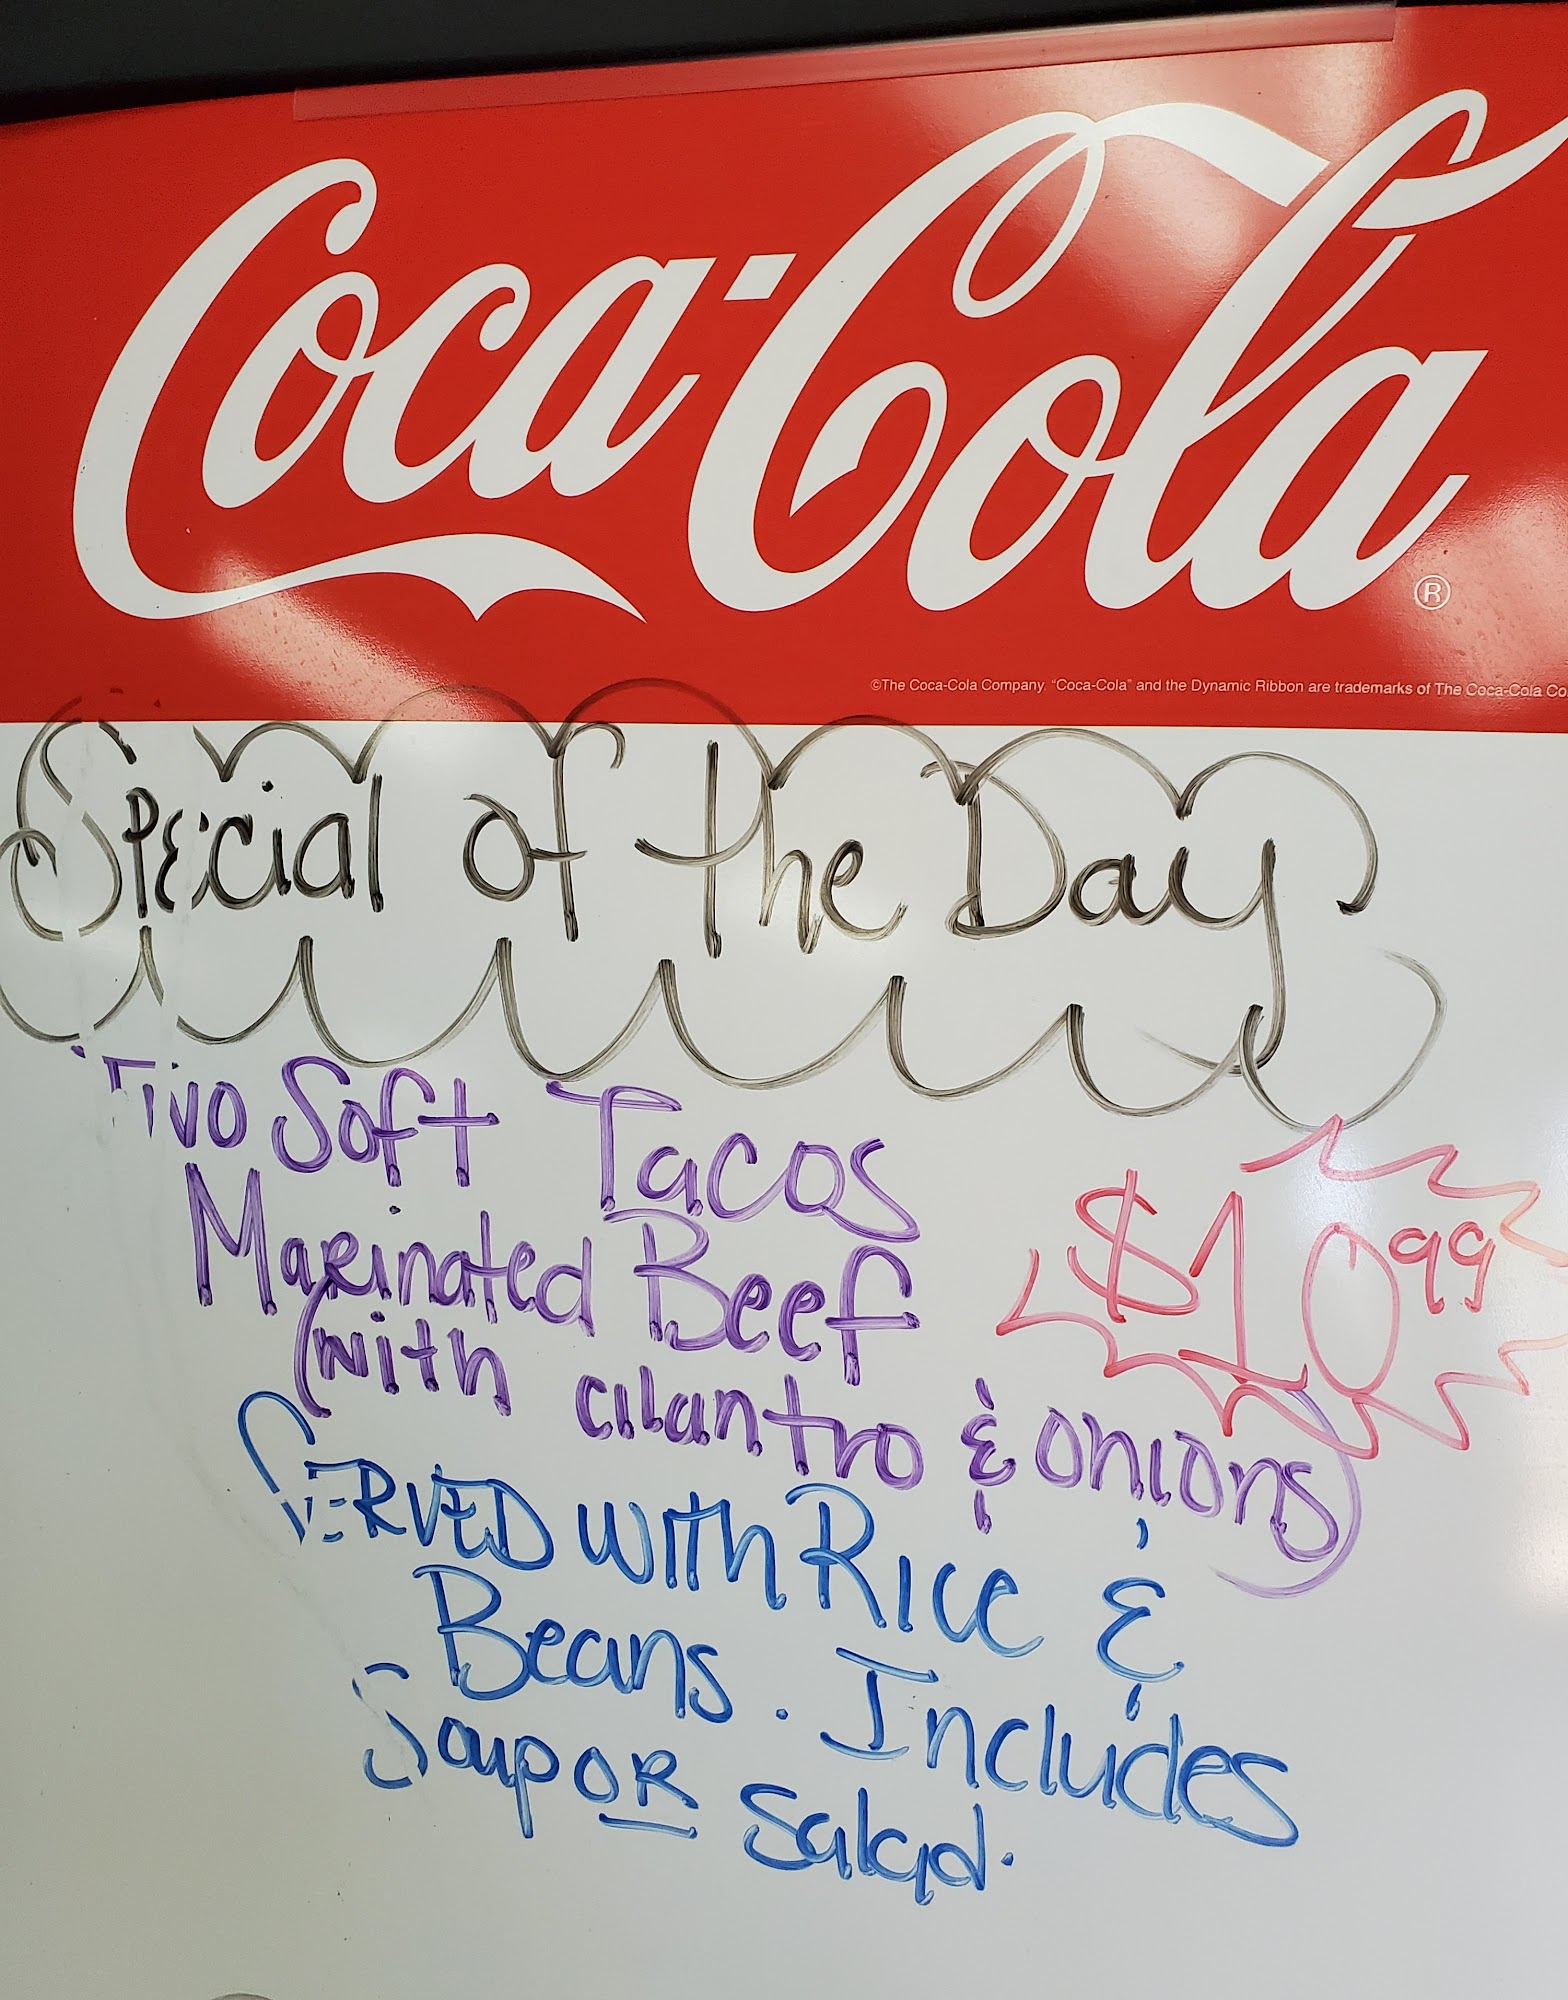 Coca-Cola ®
©The Coca-Cola Company. "Coca-Cola" and the Dynamic Ribbon are trademarks of The Coca-Cola Co
Special of the Day
Two Soft Tacos
Marinated Beef
$10.99
(with cilantro & onions)
SERVED with Rice &
Beans. Includes
Soup OR Salad.